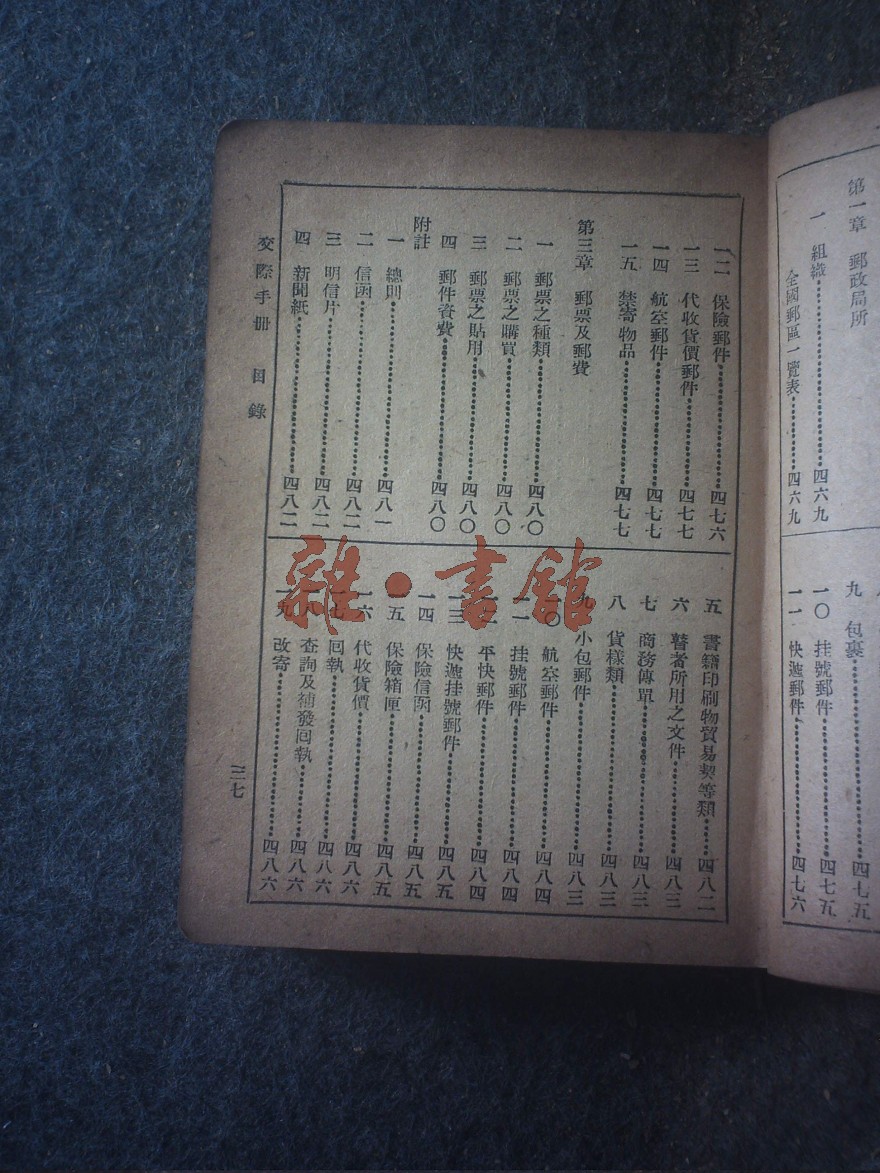 第一章 郵政局所
一 組織 四六九
全國郵區一覽表 四六九
九 包裹 四七五
一〇 挂號郵件 四七五
一一 快遞郵件 四七六
一二 保險郵件 四七六
一三 代收貨價郵件 四七七
一四 航空郵件 四七七
一五 禁寄物品 四七七
第三章 郵票及郵費
一 郵票之種類 四八〇
二 郵票之購買 四八〇
三 郵票之貼用 四八〇
四 郵件資費 四八〇
附註
一 總則 四八一
二 信函 四八二
三 明信片 四八二
四 新聞紙 四八二
五 書籍印刷物貿易契等類 四八二
六 瞽者所用之文件 四八三
七 商務傳單 四八三
八 貨樣類 四八三
九 小包郵件 四八三
一〇 航空郵件 四八四
一一 挂號郵件 四八四
一二 平快郵件 四八四
一三 快遞挂號郵件 四八五
一四 保險信函 四八五
一五 保險箱匣 四八五
一六 代收貨價 四八六
一七 回執 四八六
一八 查詢及補發回執 四八六
一九 改寄 四八六
交際手册 目錄
三七
雜·書館